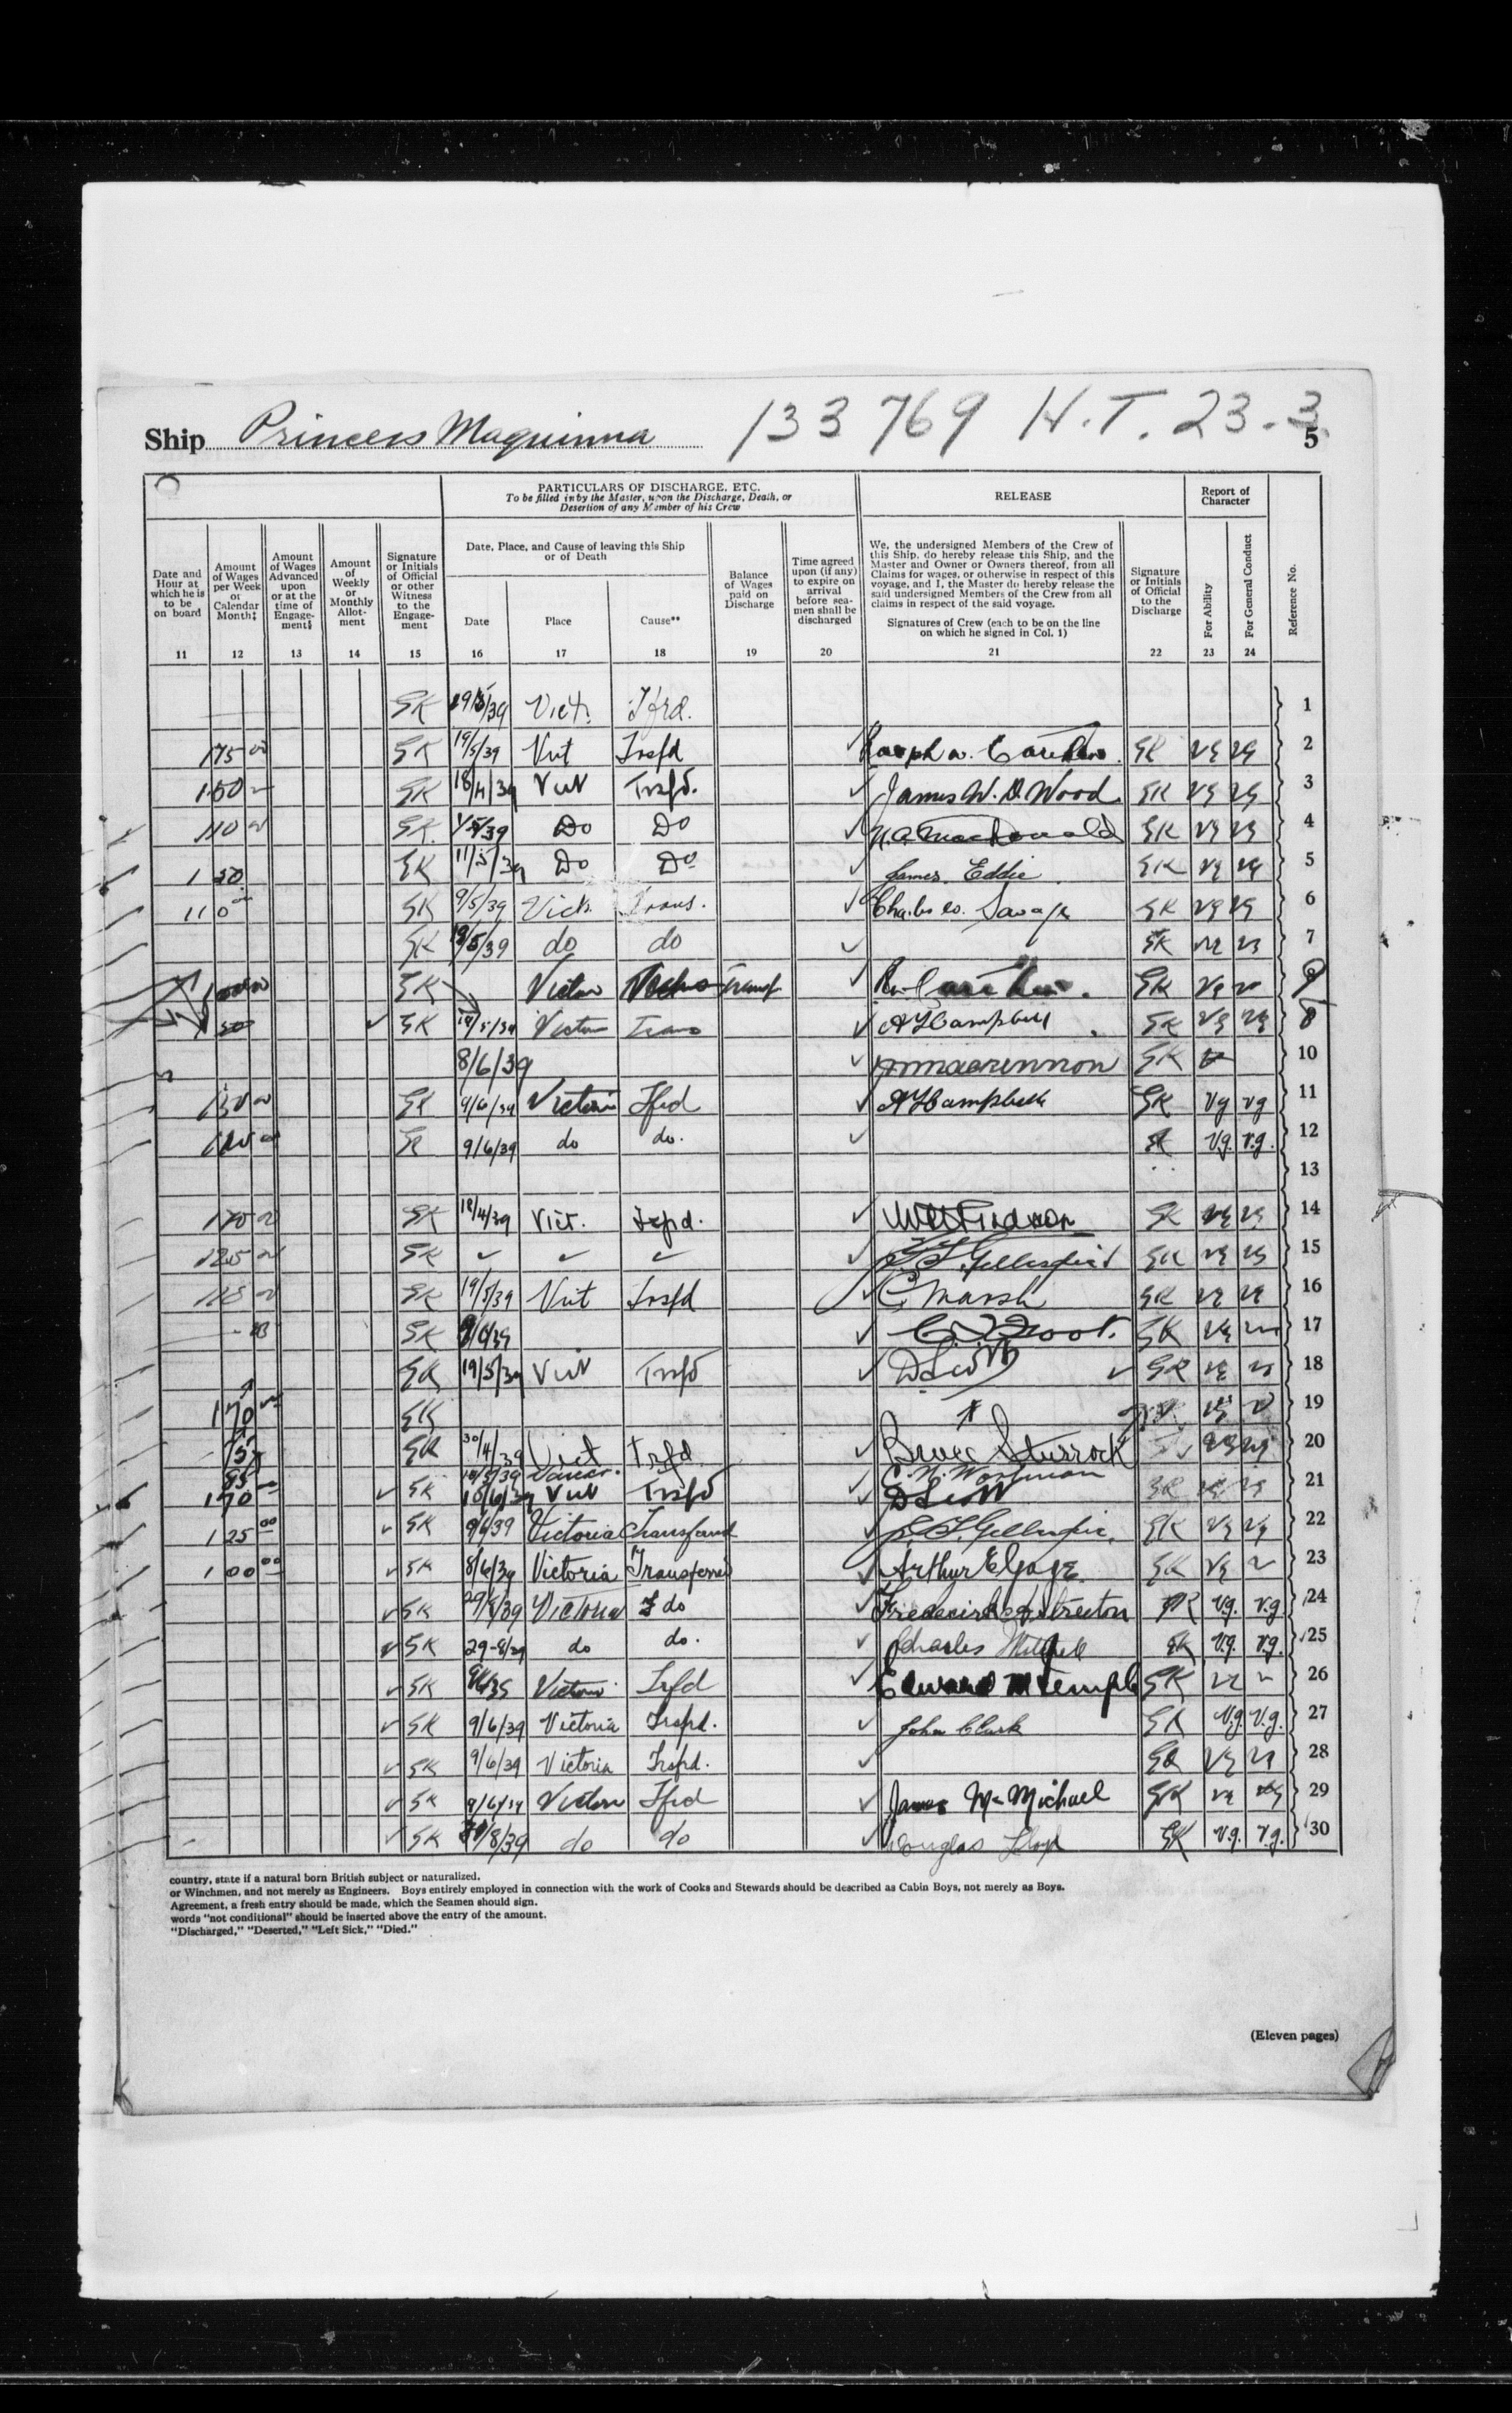 Ship Princess Maquinna 133769 H.T. 23.3
5
PARTICULARS OF DISCHARGE, ETC.
To be filled in by the Master, upon the Discharge, Death, or
Desertion of any Member of his Crew
RELEASE
Report of
Character
Date and Hour at which he is to be on board
Amount of Wages per Week or Calendar Month‡
Amount of Wages Advanced upon or at the time of Engagement§
Amount of Weekly or Monthly Allotment
Signature or Initials of Official or other Witness to the Engagement
Date, Place, and Cause of leaving this Ship or of Death
Date
Place
Cause**
Balance of Wages paid on Discharge
Time agreed upon (if any) to expire on arrival before seamen shall be discharged
We, the undersigned Members of the Crew of
this Ship, do hereby release this Ship, and the
Master and Owner or Owners thereof, from all
Claims for wages, or otherwise in respect of this
voyage, and I, the Master do hereby release the
said undersigned Members of the Crew from all
claims in respect of the said voyage.
Signatures of Crew (each to be on the line
on which he signed in Col. 1)
Signature or Initials of Official to the Discharge
For Ability
For General Conduct
Reference No.
11 12 13 14 15 16 17 18 19 20 21 22 23 24
GK 19/5/39 Vict. Tfrd. 1
175 00 GK 19/5/39 Vict Trsfd Ralph W. GK vg vg 2
150 GK 18/4/39 Vict Trsfd. James W. D. Wood GK vg vg 3
110 GK 39 Do Do MacDonald GK vg vg 4
150 GK 11/5/39 Do Do James Eddie GK vg vg 5
110 00 GK 9/5/39 Vict. Trans. Charles W. Savage GK vg vg 6
GK 19/5/39 do do GK vg vg 7
GK Victoria Transf GK vg 9
150 GK 19/5/39 Victoria Trans A Campbell GK vg vg 8
8/6/39 GK 10
150 GK 9/6/39 Victoria Tfrd A Campbell GK vg vg 11
GK 9/6/39 do do. GK v.g. v.g. 12
13
170 GK 18/4/39 Vict. Trsfd. GK vg vg 14
125 GK Gillespie GK vg vg 15
GK 19/5/39 Vict Trsfd C. Marsh GK vg vg 16
GK GK vg 17
GK 19/5/39 Vict Trsfd D Scott GK vg vg 18
170 GK vg 19
GK 30/4/39 Vict Trsfd. Bruce Sturrock vg vg 20
10/5/39 Vancr. C. N. Workman
170 GK 10/6/39 Vict Trsfd D Scott GK vg vg 21
125 00 GK 9/6/39 Victoria Transferred Gillespie GK vg vg 22
100 00 GK 8/6/39 Victoria Transferred Arthur E Gage GK vg 23
GK 39 Victoria do Frederick Streeton GK v.g. v.g. 24
GK 29-8/39 do do. Charles Mitchell GK v.g. v.g. 25
GK Victoria Trsfd Edward M Temple GK vg 26
GK 9/6/39 Victoria Trsfd. John Clark GK v.g. v.g. 27
GK 9/6/39 Victoria Trsfd. GK vg vg 28
GK 9/6/39 Victoria Tfrd James McMichael GK vg vg 29
GK /8/39 do do Douglas Lloyd GK v.g. v.g. 30
country, state if a natural born British subject or naturalized.
or Winchmen, and not merely as Engineers. Boys entirely employed in connection with the work of Cooks and Stewards should be described as Cabin Boys, not merely as Boys.
Agreement, a fresh entry should be made, which the Seamen should sign.
words "not conditional" should be inserted above the entry of the amount.
"Discharged," "Deserted," "Left Sick," "Died."
(Eleven pages)